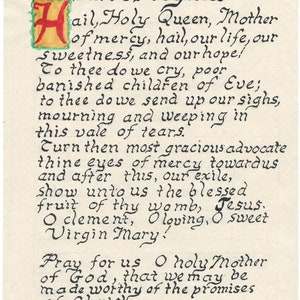 Hail, Holy Queen, Mother
of mercy, hail, our life, our
sweetness, and our hope!
To thee do we cry, poor
banished children of Eve;
to thee do we send up our sighs,
mourning and weeping in
this vale of tears.
Turn then most gracious advocate
thine eyes of mercy toward us
and after this, our exile,
show unto us the blessed
fruit of thy womb, Jesus.
O clement, O loving, O sweet
Virgin Mary!
Pray for us O holy Mother
of God, that we may be
made worthy of the promises